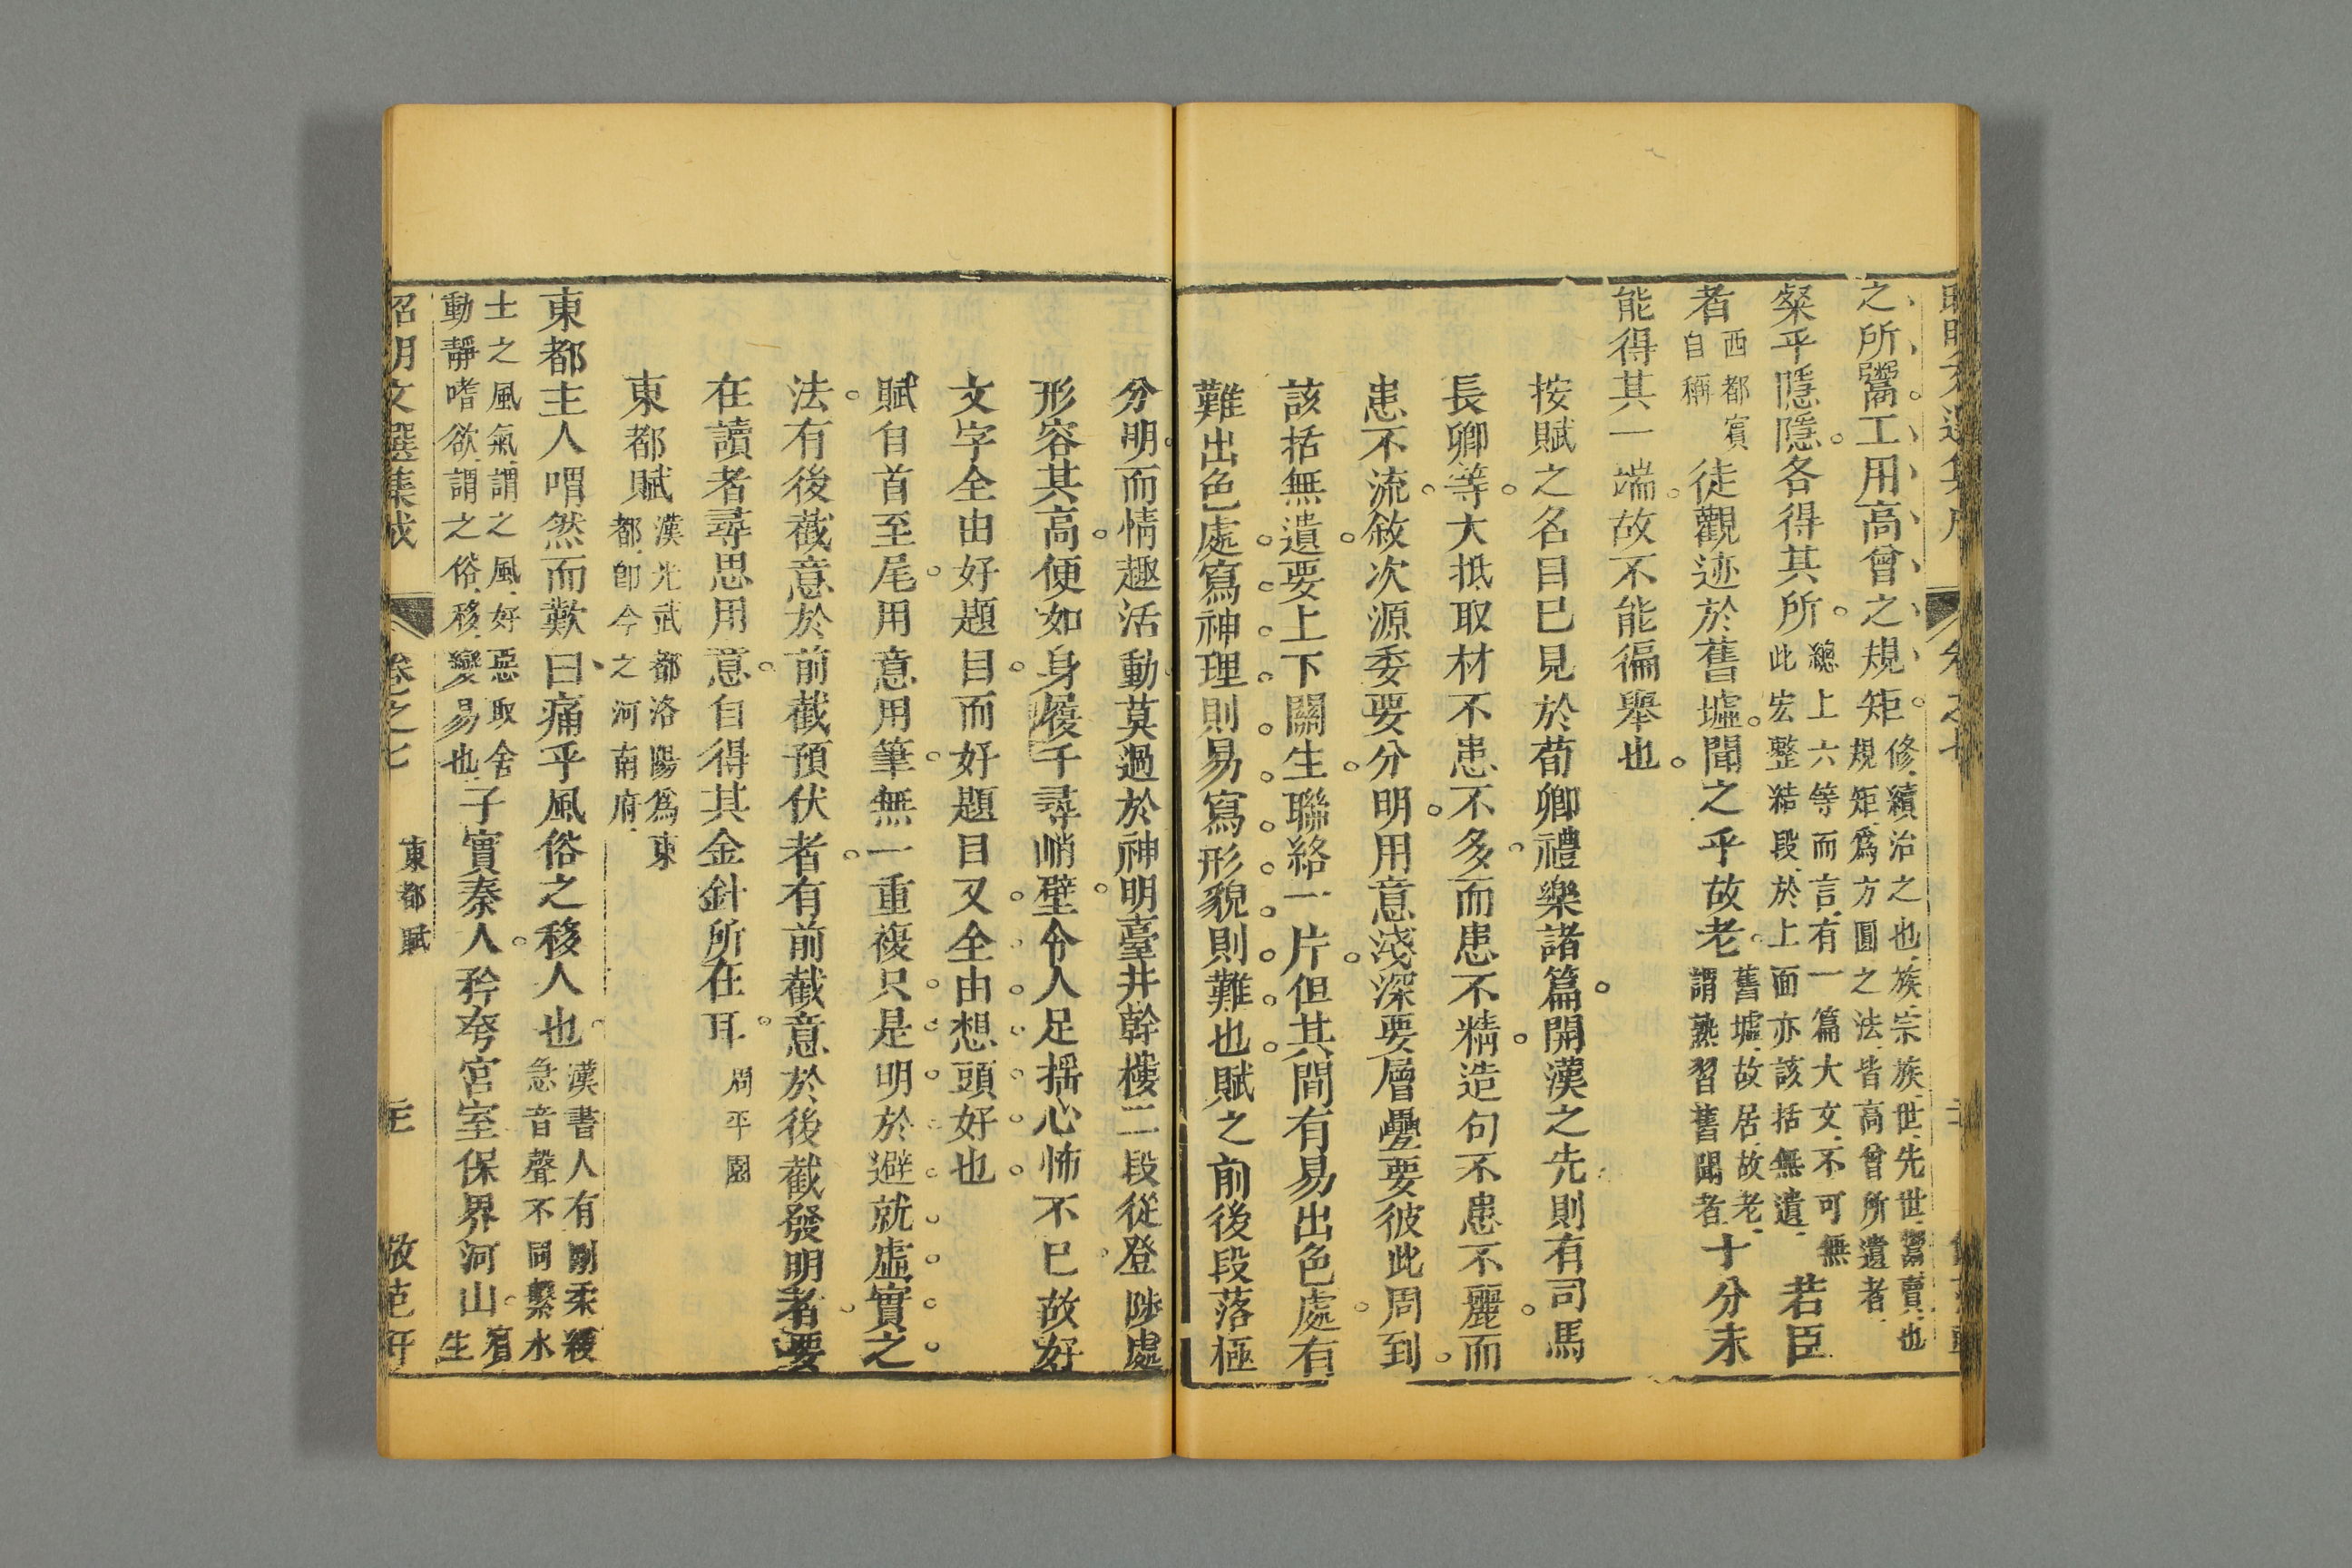 之所鬻工用高曾之規矩修續治之也族宗族世先世鬻賣也
規矩爲方圓之法皆高曾所遺者
粲乎隱隱各得其所總上六等而言有一篇大文不可無
此宏整結段於上面亦該括無遺若臣
者西都賓
自稱徒觀迹於舊墟聞之乎故老舊墟故居故老
謂熟習舊聞者十分未
能得其一端故不能徧舉也
按賦之名目已見於荀卿禮樂諸篇開漢之先則有司馬
長卿等大抵取材不患不多而患不精造句不患不麗而
患不流敘次源委要分明用意淺深要層疊要彼此周到
該括無遺要上下關生聯絡一片但其間有易出色處有
難出色處寫神理則易寫形貌則難也賦之前後段落極
分明而情趣活動莫過於神明臺井幹樓二段從登陟處
形容其高便如身履千尋峭壁令人足搖心怖不已故好
文字全由好題目而好題目又全由想頭好也
賦自首至尾用意用筆無一重複只是明於避就虛實之
法有後截意於前截預伏者有前截意於後截發明者要
在讀者尋思用意自得其金針所在耳周平園
東都賦漢光武都洛陽爲東
都卽今之河南府
東都主人喟然而歎曰痛乎風俗之移人也漢書人有剛柔緩
急音聲不同繫水
土之風氣謂之風好惡取舍
動靜嗜欲謂之俗移變易也子實秦人矜夸宮室保界河山賓
生
昭明文選集成 卷之七 東都賦